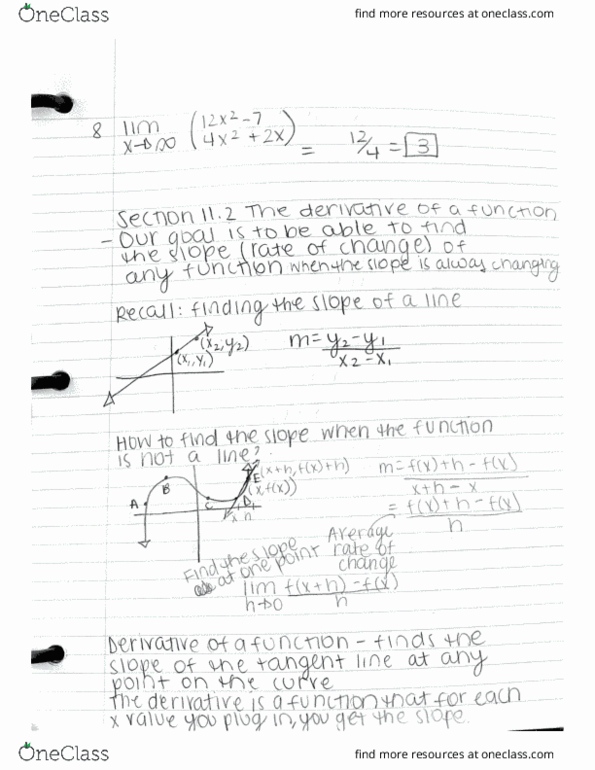 OneClass
find more resources at oneclass.com
8 lim x→∞ (12x² - 7 / 4x² + 2x) = 12/4 = 3
Section 11.2 The derivative of a function
- Our goal is to be able to find
the slope (rate of change) of
any function when the slope is alway changing
Recall: finding the slope of a line
(x2, y2)
(x1, y1)
m = y2 - y1 / x2 - x1
How to find the slope when the function
is not a line?
(x+h, f(x)+h)
(x f(x))
A
B
C
D
E
x h
m = f(x)+h - f(x) / x+h - x
= f(x)+h - f(x) / h
Average
rate of
change
Find the slope
at one point
lim h→0 f(x+h) - f(x) / h
Derivative of a function - finds the
slope of the tangent line at any
point on the curve
The derivative is a function that for each
x value you plug in, you get the slope.
OneClass
find more resources at oneclass.com